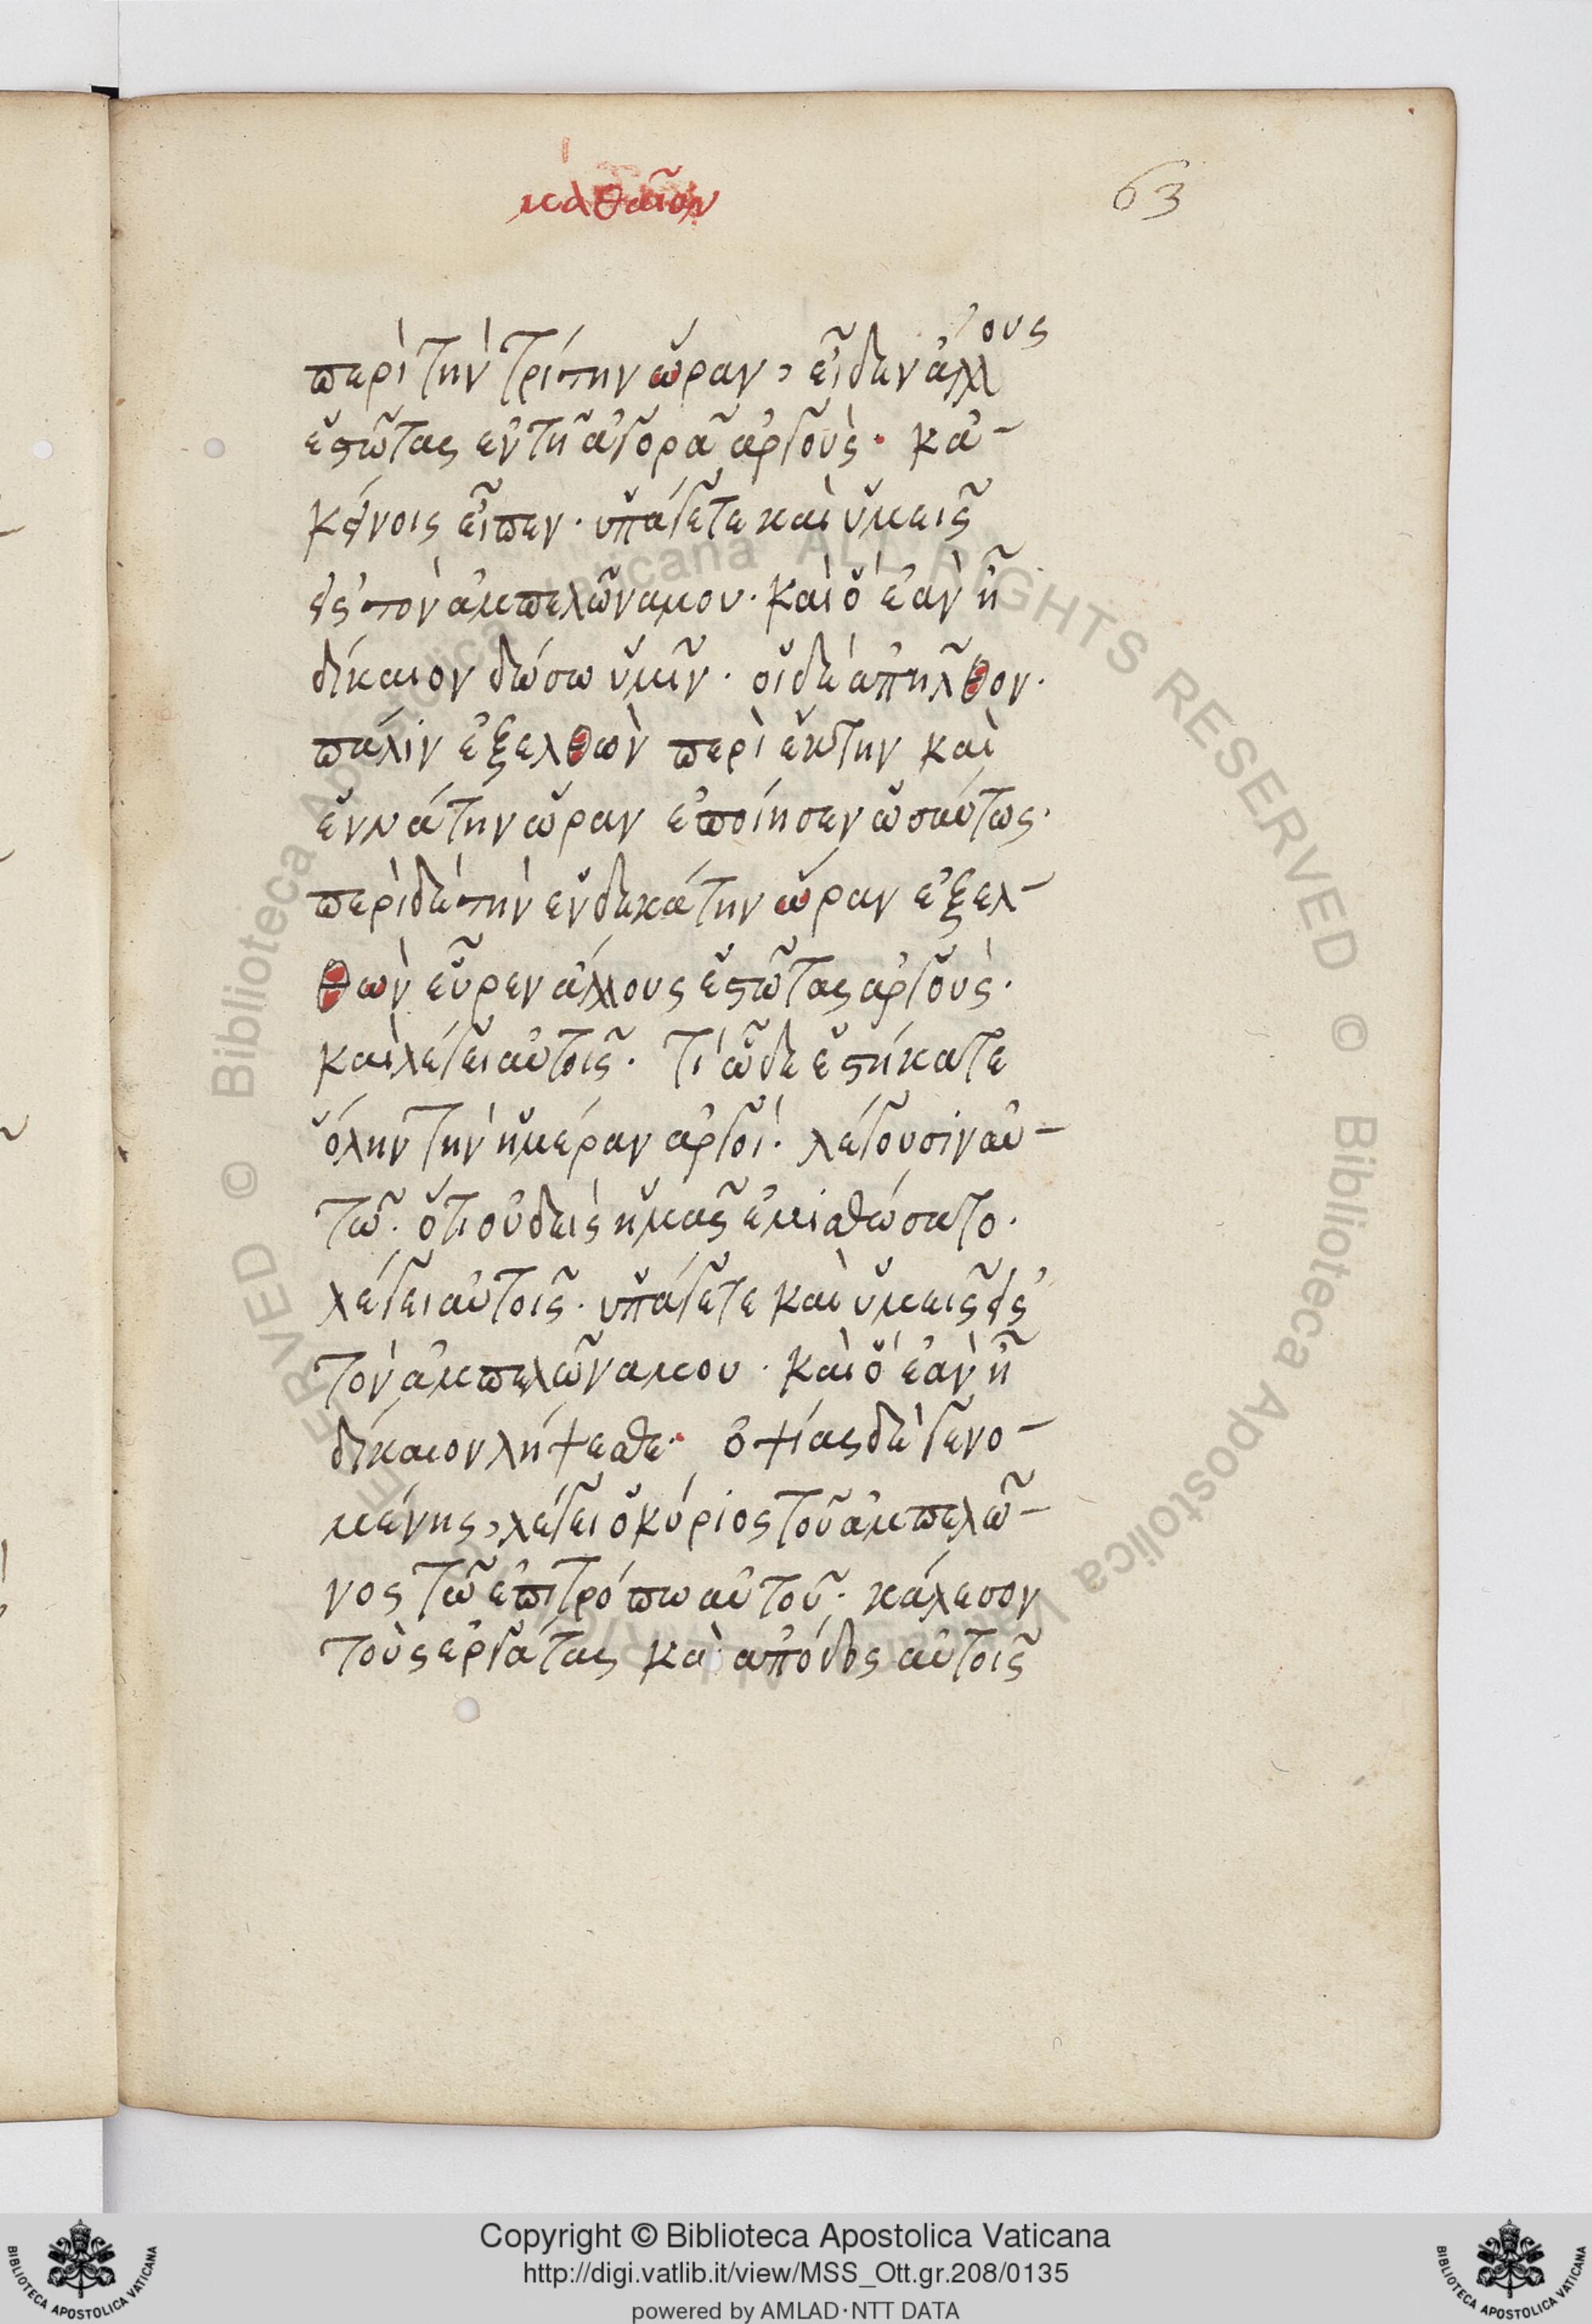 μαθαῖον
63
περὶ τὴν τρίτην ὥραν, εἶδεν ἄλλους
ἑστῶτας ἐν τῆ ἀγορᾶ ἀργούς· κἀ-
κείνοις εἶπεν· ὑπάγετε καὶ ὑμεῖς
εἰς τὸν ἀμπελῶνα μου· καὶ ὃ ἐὰν ἦ
δίκαιον δώσω ὑμῖν· οἱ δὲ ἀπῆλθον·
πάλιν ἐξελθὼν περὶ ἕκτην καὶ
ἐννάτην ὥραν ἐποίησεν ὡσαύτως·
περὶ δὲ τὴν ἑνδεκάτην ὥραν ἐξελ-
θὼν εὗρεν ἄλλους ἑστῶτας ἀργούς·
καὶ λέγει αὐτοῖς· τί ὧδε ἑστήκατε
ὅλην τὴν ἡμέραν ἀργοί· λέγουσιν αὐ-
τῶ· ὅτι οὐδεὶς ἡμᾶς ἐμισθώσατο·
λέγει αὐτοῖς· ὑπάγετε καὶ ὑμεῖς εἰς
τὸν ἀμπελῶνα μου· καὶ ὃ ἐὰν ἦ
δίκαιον λήψεσθε· ὀψίας δὲ γενο-
μένης, λέγει ὁ κύριος τοῦ ἀμπελῶ-
νος τῶ ἐπιτρόπω αὐτοῦ· κάλεσον
τοὺς ἐργάτας καὶ ἀπόδος αὐτοῖς
© Biblioteca Apostolica Vaticana ALL RIGHTS RESERVED © Biblioteca Apostolica Vaticana ALL RIGHTS RESERVED
Copyright © Biblioteca Apostolica Vaticana
http://digi.vatlib.it/view/MSS_Ott.gr.208/0135
powered by AMLAD·NTT DATA
BIBLIOTECA APOSTOLICA VATICANA
BIBLIOTECA APOSTOLICA VATICANA